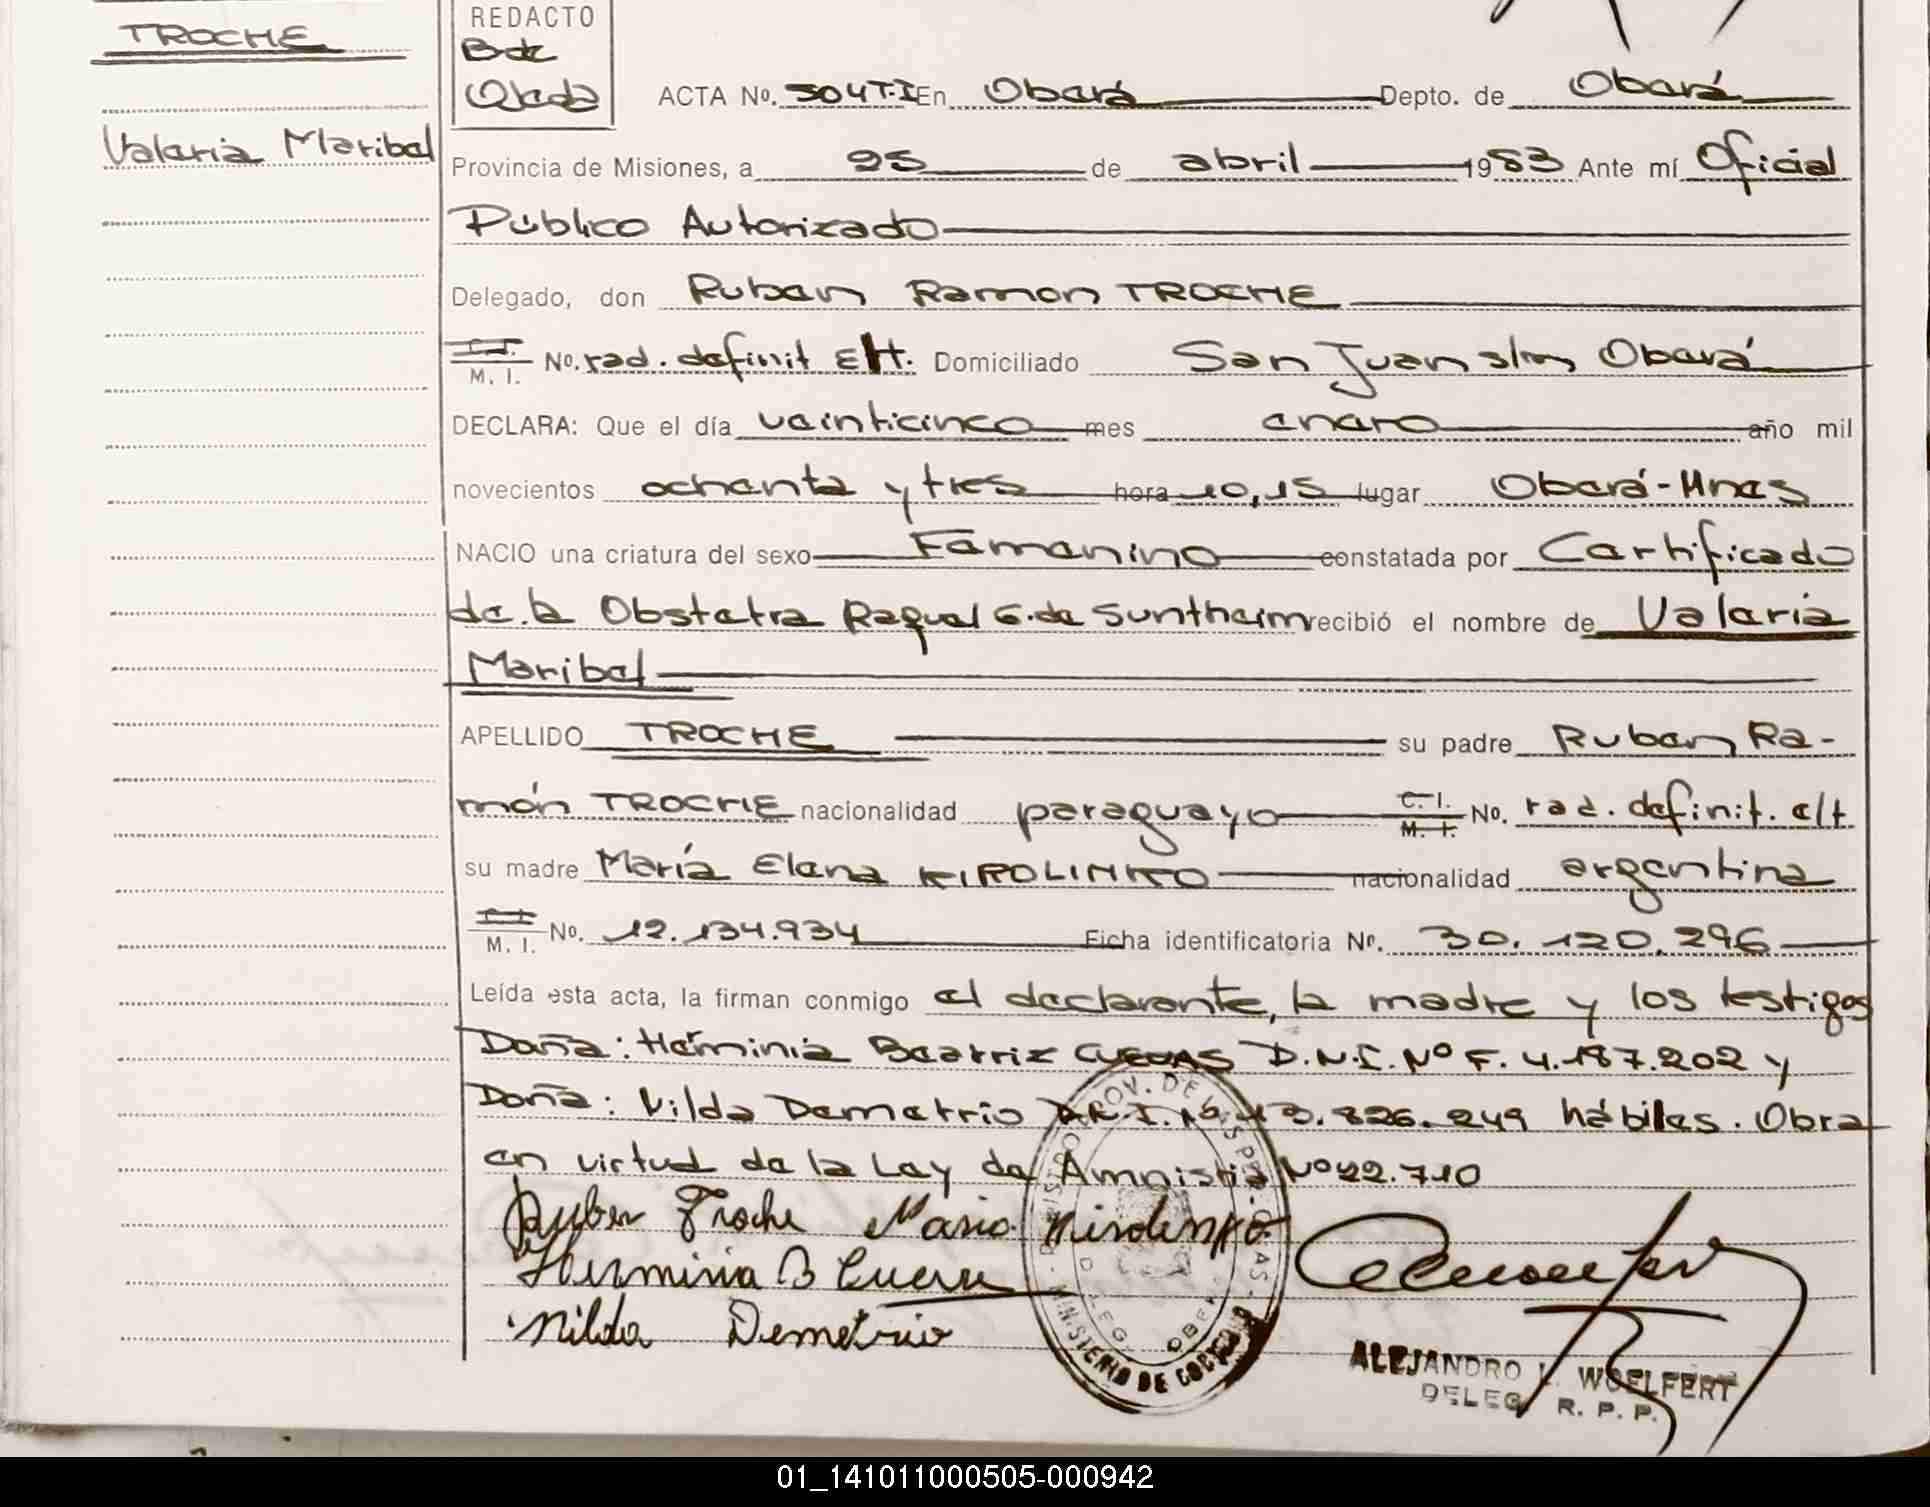 TROCHE
Valeria Maribel
REDACTO
Bde
Ojeda
ACTA No. 504T.I En Oberá Depto. de Oberá
Provincia de Misiones, a 25 de abril 1983 Ante mí Oficial
Público Autorizado
Delegado, don Ruben Ramon TROCHE
C. I. M. I. No. rad. definit E/t. Domiciliado San Juan s/n Oberá
DECLARA: Que el día veinticinco mes enero año mil
novecientos ochenta y tres hora 10,15 lugar Oberá-Mnes
NACIO una criatura del sexo Femenino constatada por Certificado
de la Obstetra Raquel G. de Suntheim recibió el nombre de Valeria
Maribel
APELLIDO TROCHE su padre Ruben Ra-
món TROCHE nacionalidad paraguayo C. I. M. I. No. rad. definit. e/t
su madre María Elena KIROLINKO nacionalidad argentina
C. I. M. I. No. 12.134.934 Ficha identificatoria No. 30.120.296
Leída esta acta, la firman conmigo el declarante, la madre y los testigos
Doña: Herminia Beatriz CUEVAS D.N.I. Nº F. 4.187.202 y
Doña: Nilda Demetrio D.N.I. Nº 13.826.249 hábiles. Obra
en virtud de la Ley de Amnistia Nº 22.710
Ruben Troche Maria Kirolinko
Herminia B Cuevas
Nilda Demetrio
ALEJANDRO L. WOELFERT
DELEG. R. P. P.
01_141011000505-000942